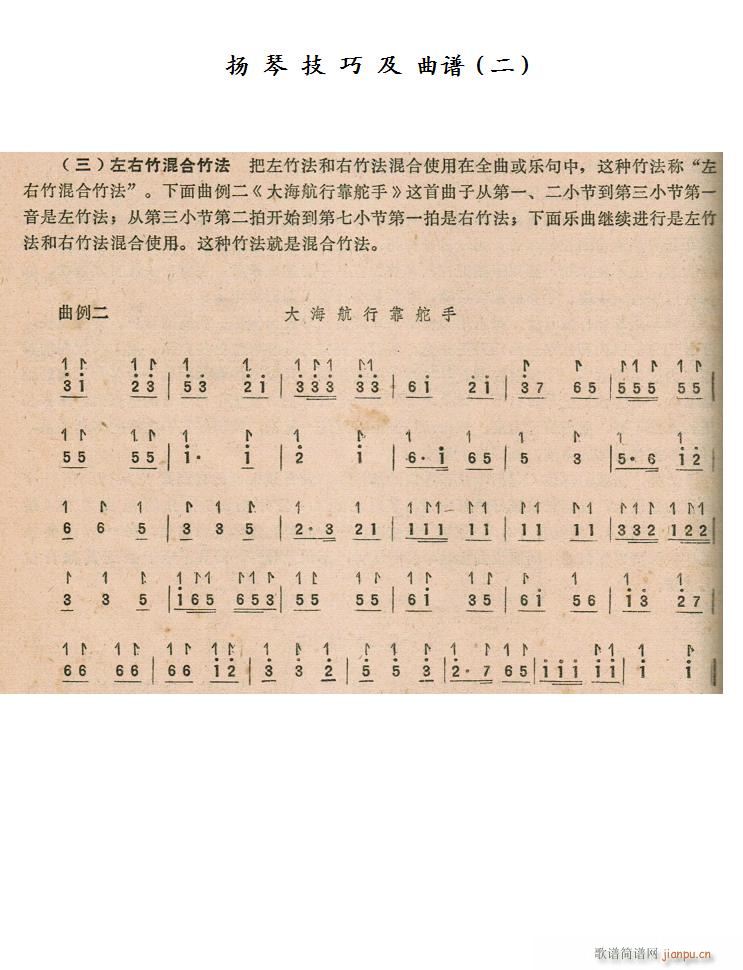 扬琴技巧及曲谱(二)
(三)左右竹混合竹法 把左竹法和右竹法混合使用在全曲或乐句中,这种竹法称“左
右竹混合竹法”。下面曲例二《大海航行靠舵手》这首曲子从第一、二小节到第三小节第一
音是左竹法;从第三小节第二拍开始到第七小节第一拍是右竹法;下面乐曲继续进行是左竹
法和右竹法混合使用。这种竹法就是混合竹法。
曲例二 大海航行靠舵手
3i 23 | 53 2i | 333 33 | 6i 2i | 37 65 | 555 55 |
55 55 | i· i | 2 i | 6·i 65 | 5 3 | 5·6 i2 |
6 6 5 | 3 3 5 | 2·3 21 | 111 11 | 11 11 | 332 122 |
3 3 5 | i65 653 | 55 55 | 6i 35 | 6i 56 | i3 27 |
66 66 | 66 i2 | 3 3 2 | 5 5 3 | 2·7 65 | iii ii | i i |
歌谱简谱网 jianpu.cn